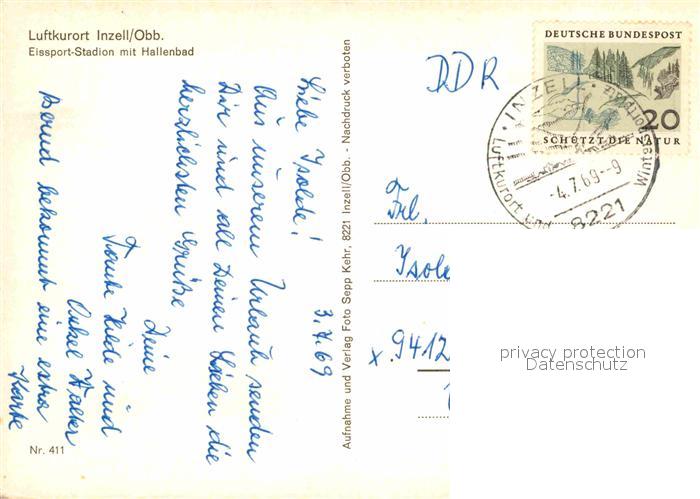 Luftkurort Inzell/Obb.
Eissport-Stadion mit Hallenbad
3.7.69
Liebe Isolde!
Aus unserem Urlaub senden
Dir und all Deinen Lieben die
herzlichsten Grüße
Deine
Tante Hilde und
Onkel Walter
Bernd bekommt eine extra
Karte
Nr. 411
Aufnahme und Verlag Foto Sepp Kehr, 8221 Inzell/Obb. - Nachdruck verboten
DDR
DEUTSCHE BUNDESPOST
20
SCHÜTZT DIE NATUR
· INZELL ·
Luftkurort und Wintersportplatz
-4.7.69--9
8221
Frl.
Isol
x. 9412
privacy protection
Datenschutz